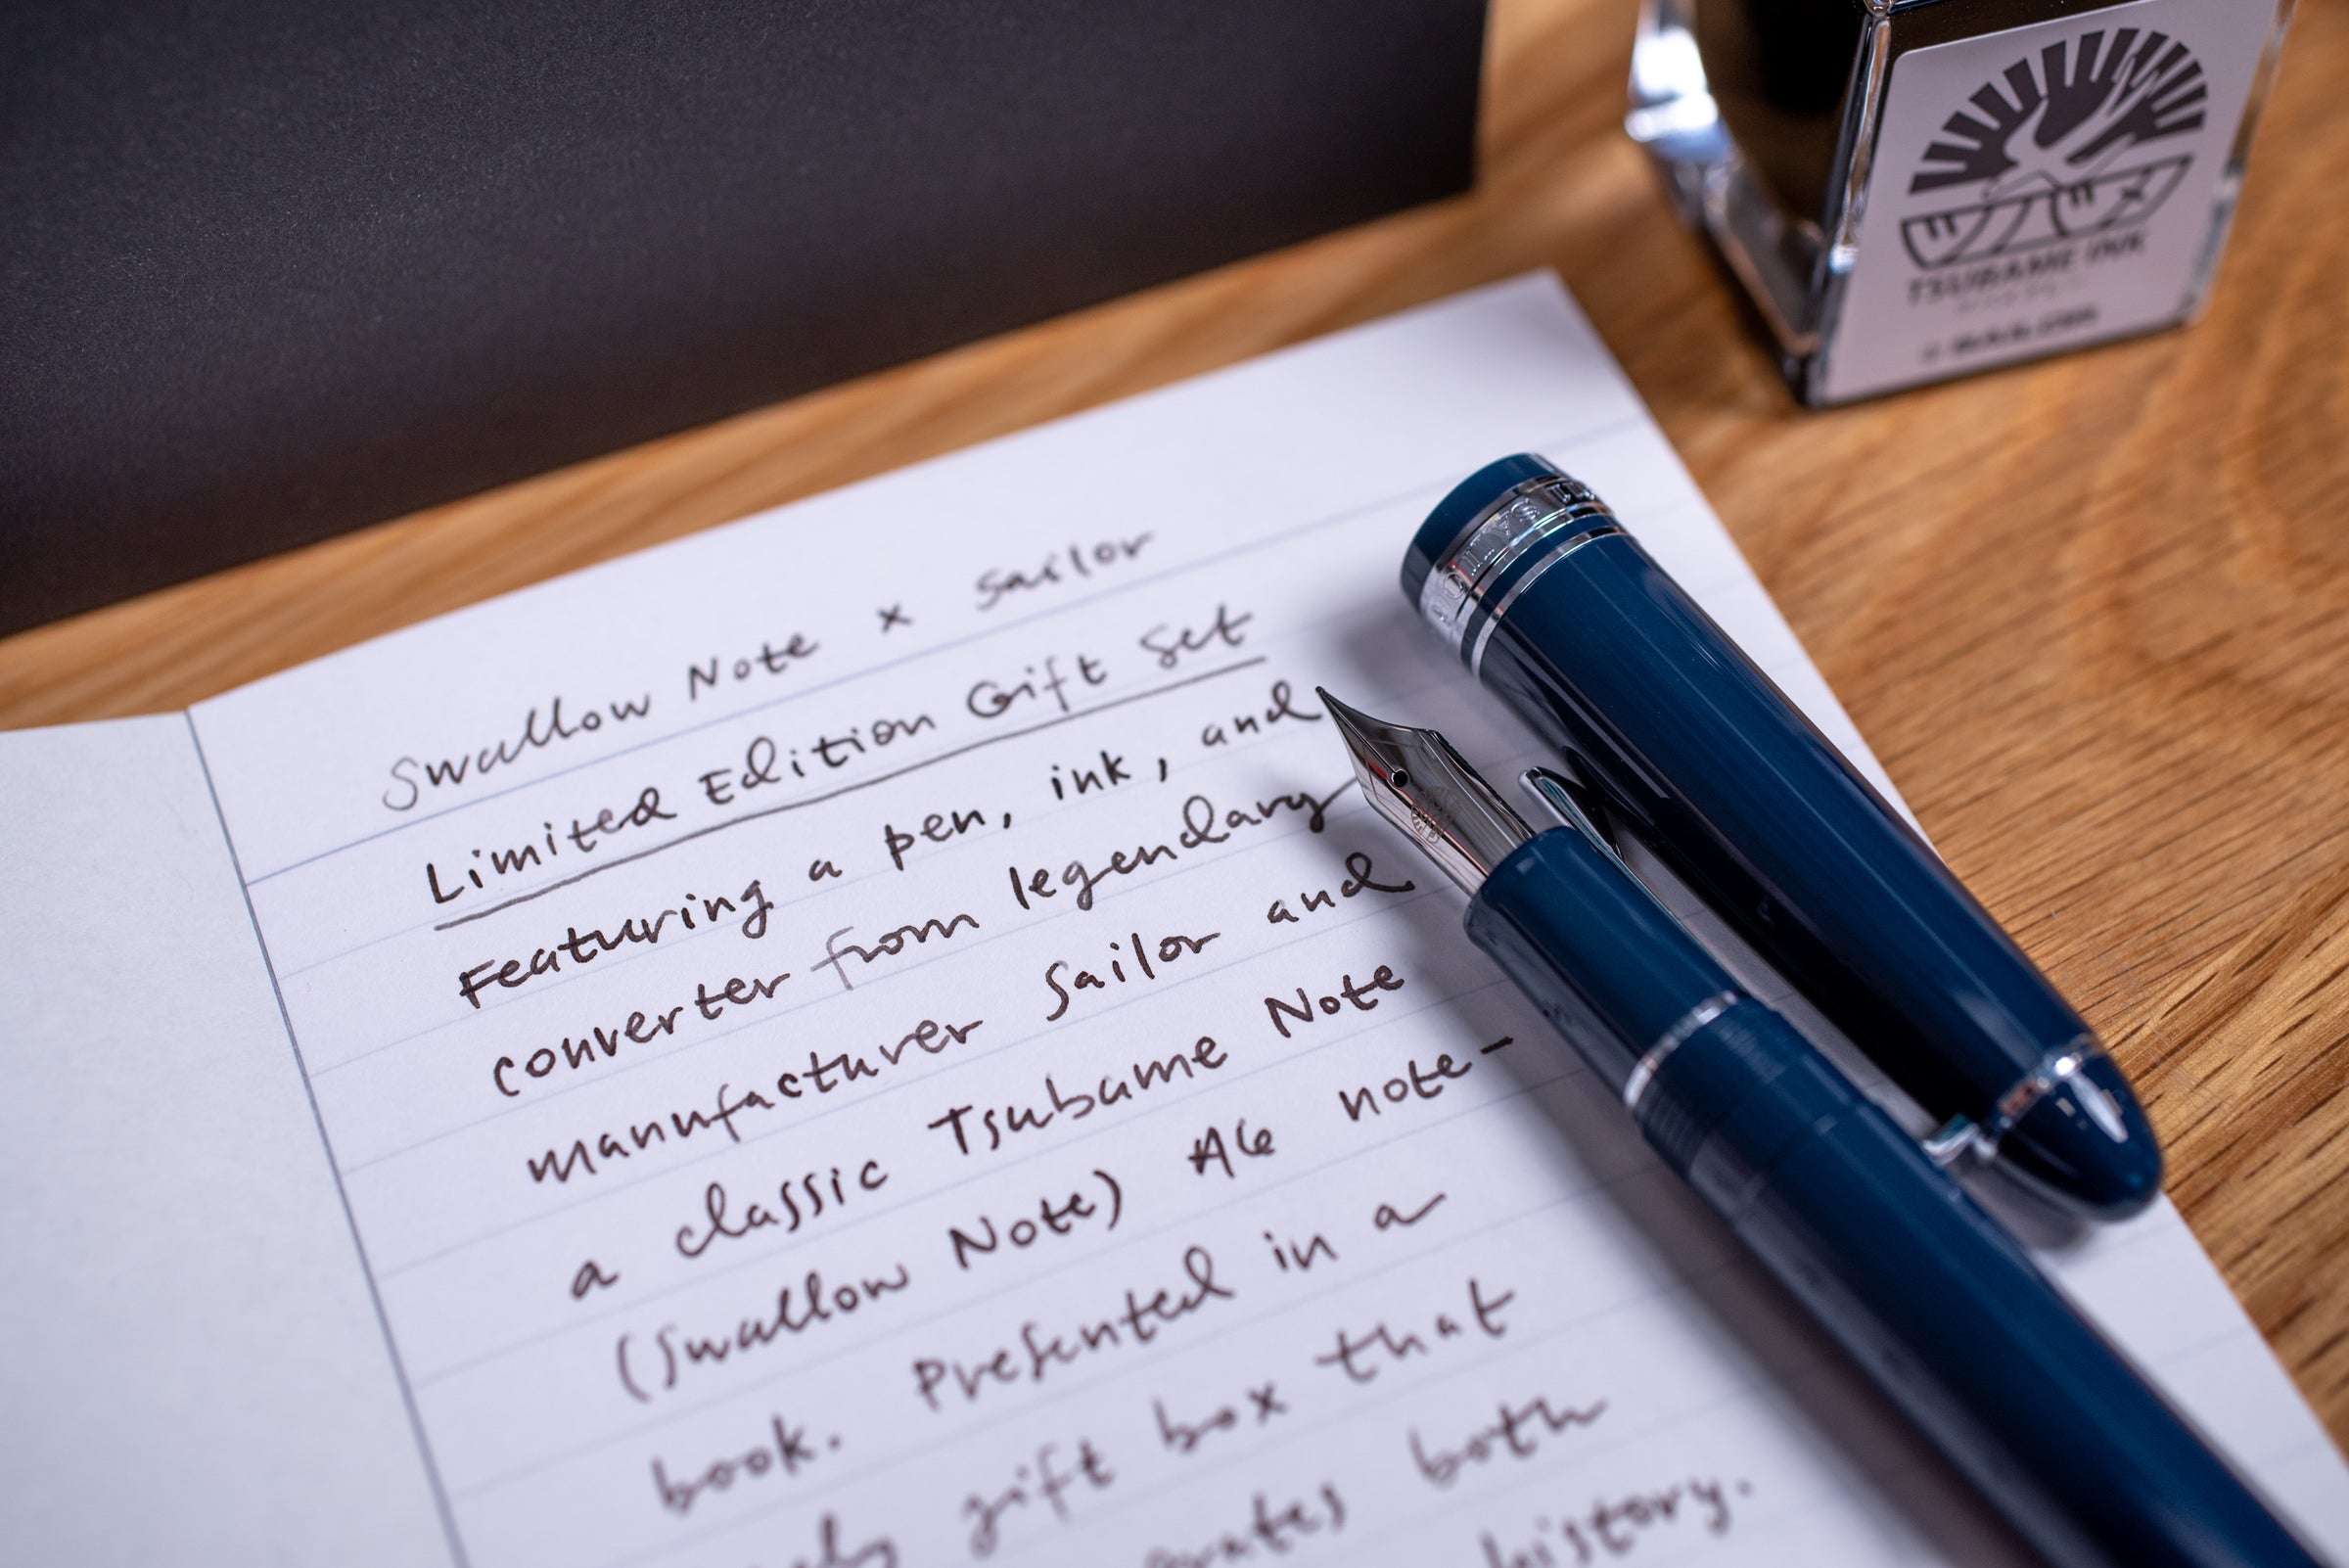 Swallow Note × Sailor
Limited Edition Gift Set
Featuring a pen, ink, and
converter from legendary
manufacturer Sailor and
a classic Tsubame Note
(Swallow Note) A6 note-
book. Presented in a
gift box that
both
history.
ツバメ
TSUBAME INK
SAILOR